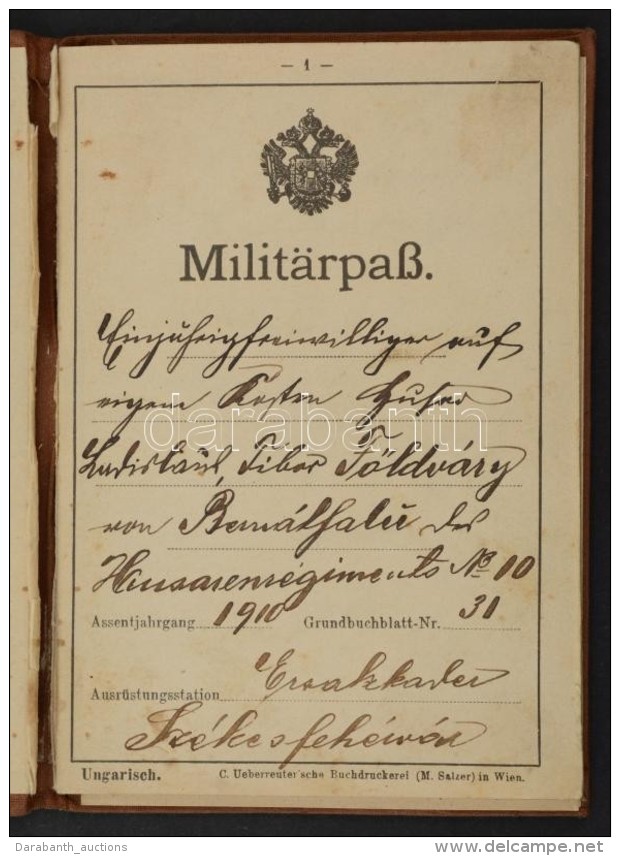 - 1 -
Militärpaß.
Einjährigfreiwilliger auf
eigene Kosten Husar
Ladislaus, Tibor Földváry
von Bernáthfalu des
Husarenregiments № 10
Assentjahrgang 1910 Grundbuchblatt-Nr. 31
Ausrüstungsstation Ersatzkader
Székesfehérvár
Ungarisch. C. Ueberreuter'sche Buchdruckerei (M. Salzer) in Wien.
darabanth
Darabanth_auctions
delcampe.net